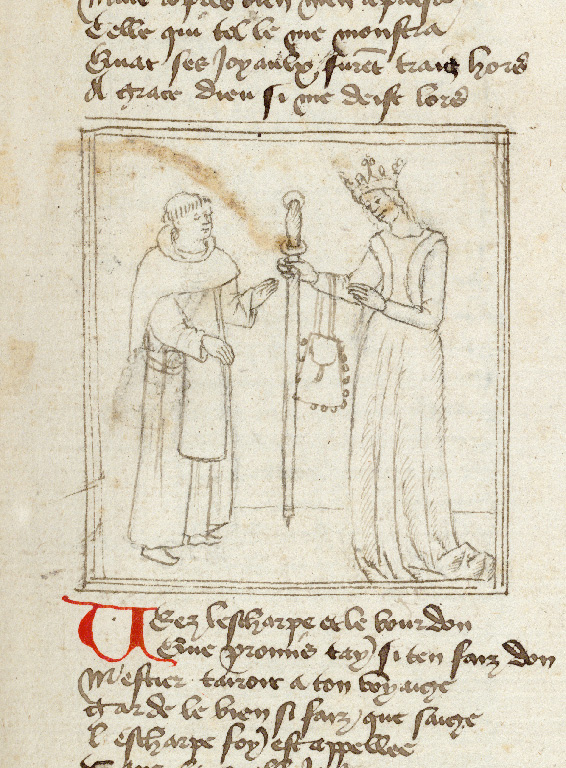 Celle qui tel le me monstra
Quat ses Joyaulx furēt trais hors
A grace dieu si me deist lors
Veez lescharpe et le bourdon
Que promis tay si ten faiz don
Mestier tairont a ton voyaige
Garde le bien si faiz que saige
lescharpe foy est appellee